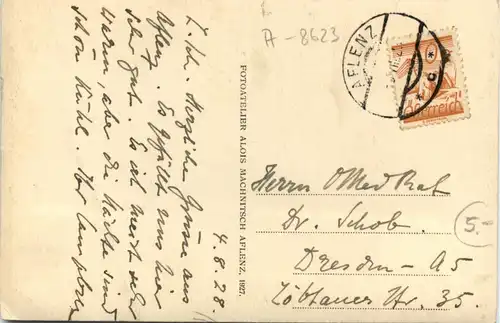 L. Sch. Herzliche Grüsse aus
Aflenz. Es gefällt uns hier
sehr gut. Es ist meist sehr
warm, aber die Nächte sind
schon kühl. Ihr
4.8.28.
FOTOATELIER ALOIS MACHNITSCH AFLENZ. 1927.
A-8623
AFLENZ
* c *
Österreich
Herrn OMed Rat
Dr. Schob.
Dresden - A5
Löbtauer Str. 35.
5.-